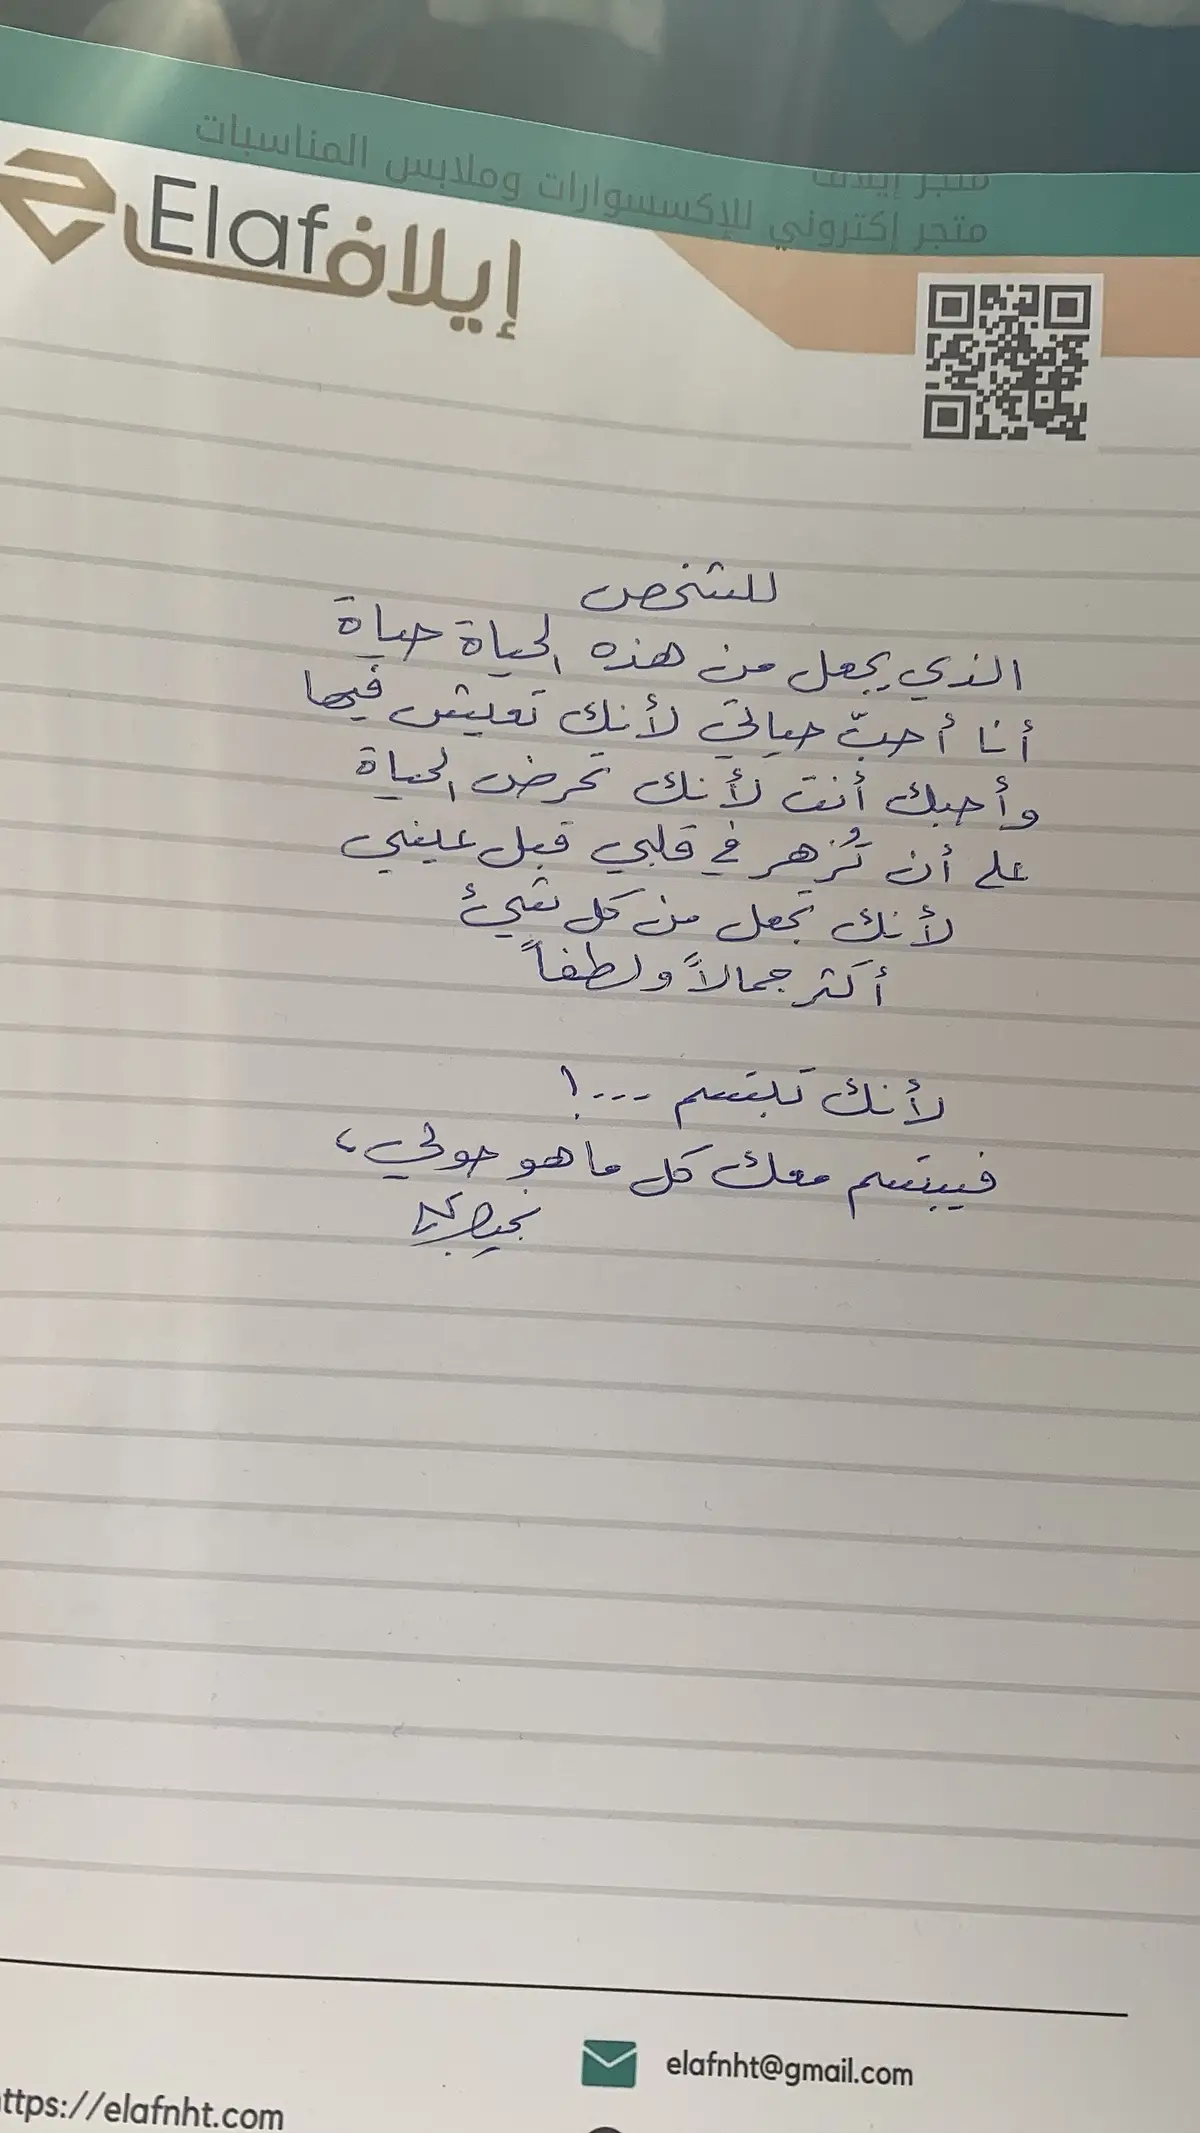 متجر إيلاف
متجر إكتروني للإكسسوارات وملابس المناسبات
Elaf إيلاف
للشخص
الذي يجعل من هذه الحياة حياة
أنا أحبّ حياتي لأنك تعيش فيها
وأحبك أنت لأنك تحرض الحياة
على أن تُزهر في قلبي قبل عيني
لأنك تجعل من كل شيئ
أكثر جمالاً ولطفاً
لأنك تبتسم ...!
فيبتسم معك كل ما هو حولي،
elafnht@gmail.com
ttps://elafnht.com